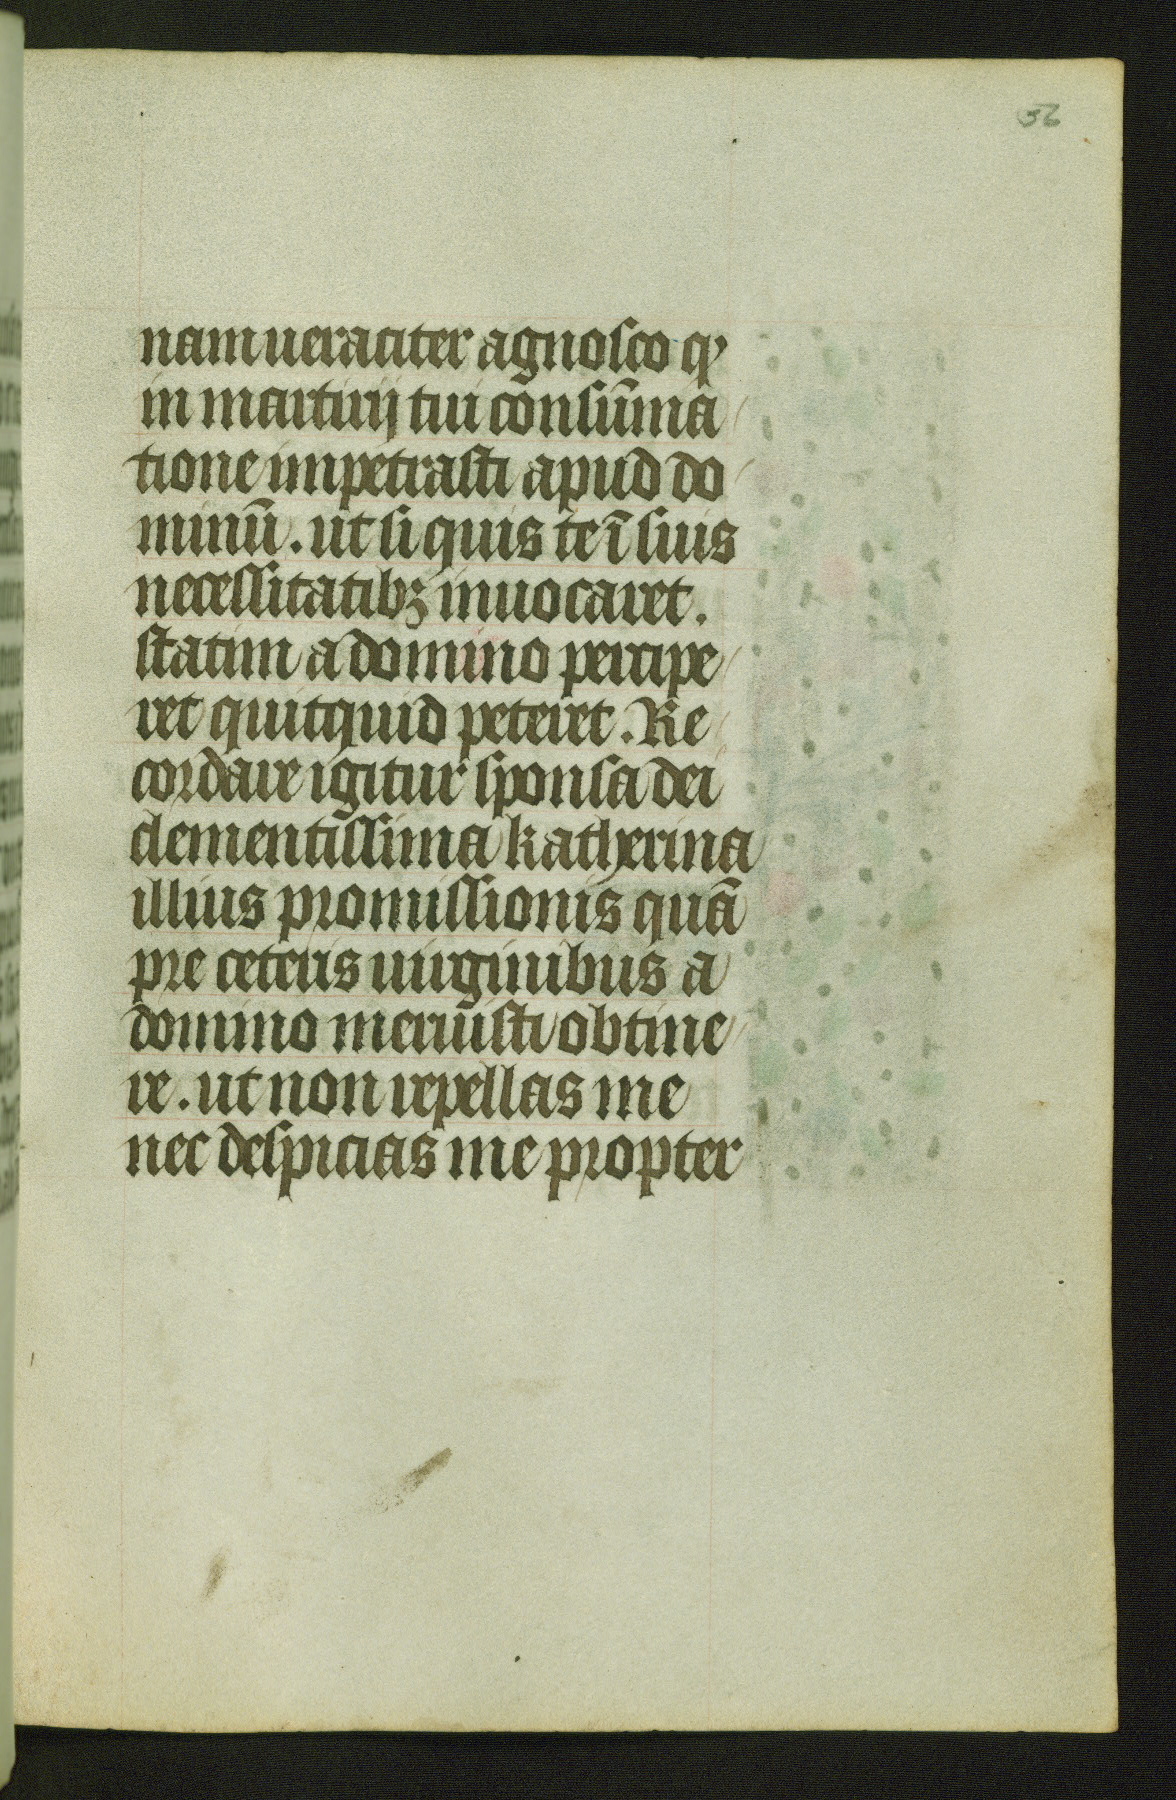 36
nam ueraciter agnosco qꝫ
in martirij tui consūma
tione impetrasti apud do
minū. ut si quis te ī suis
necessitatibꝫ inuocaret.
statim a domino percipe
ret quitquid peteret. Re
cordare igitur sponsa dei
clementissima katherina
illius promissionis quā
pre ceteris uirginibus a
domino meruisti obtine
re. ut non repellas me
nec despicias me propter